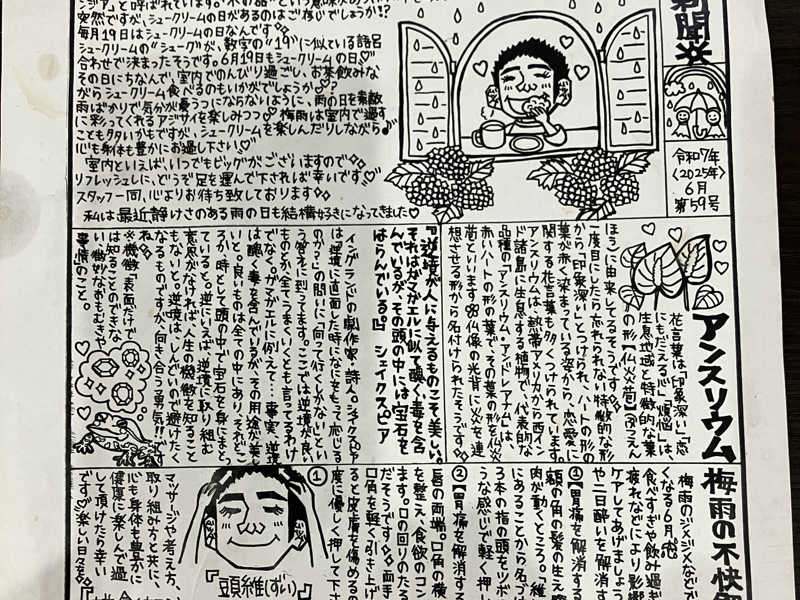 新聞
令和7年
〈2025年〉
6月
第59号
ンジア」と呼ばれています。
突然ですが、シュークリームの日があるのはご存じでしょうか!?
毎月19日はシュークリームの日なんです
シュークリームの"シューク"が、数字の"19"に似ている語呂
合わせで決まったそうです。6月19日もシュークリームの日♡
その日にちなんで、室内でのんびり過ごし、お茶飲みな
がらシュークリーム食べるのもいかがでしょうか♡?
雨ばかりで気分が憂うつにならないように、雨の日を素敵
に彩ってくれるアジサイを楽しみつつ、梅雨は室内で過す
ことも多いかもですが、シュークリームを楽しんだりしながら
心も身体も豊かにお過し下さい♡
室内といえば、いつでもビッグがございますので
リフレッシュしに、どうぞ足を運んで下されば幸いです♡
スタッフ一同、心よりお待ち致しております
私は最近、静けさのある雨の日も結構好きになってきました♡
アンスリウム
花言葉は「印象深い」「恋
にもだえる心」「煩悩」は、
生息地域と特徴的な葉
の形や仏火焔苞(ぶつえん
ほう)に由来してるそうです。
一度目にしたら忘れられない特徴的な形
から「印象深い」とつけられ、ハートの形の
葉が赤く染まっている姿から、恋愛に
関する花言葉も多くつけられています。
アンスリウムは、熱帯アメリカから西イン
ド諸島に生息する植物で、代表的な
品種の「アンスリウム・アンドレアナム」は、
赤いハートの形の葉で、その葉の形を仏炎
苞といいます 仏像の光背に火炎を連
想させる形から名付けられたそうです。
『逆境が人に与えるものこそ美しい。
それはガマガエルに似て醜く、毒を含
んでいるが、その頭の中には宝石を
はらんでいる。』 シェイクスピア
イングランドの劇作家、詩人。シェイクスピア
は「逆境に直面した時になにをもって応じる
のか?」の問いに「向って行くしかない」とい
う答えに到ってます。ここでは逆境が良い
ものとか、全てうまくいくとも言ってるわけ
でなく。ガマガエルに例えて…事実、逆境
は醜く、毒を含んでいるが、その用途が美し
いと。良いものは全ての中にあり、それどこ
ろか、時として頭の中で宝石を身ごもっ
ていると。逆にいえば、逆境に取り組む
意思がなければ、人生の機微を知ること
もないと。逆境は、しんどいので避けたく
なるものですが、向き合う勇気!!です
ね。
※機微「表面だけで
は知ることのできな
い、微妙なおもむきや
事情」のこと。
梅雨の不快
梅雨のジメジメなどが
くなる6月
食べすぎや飲み過ぎ
疲れなどにより影響
ケアしてあげましょう
や二日酔いを解消す
①【胃痛を解消する
額の角の髪の生え際
肉が動くところ。「維
にあることから名づけ
3本の指の頭をツボ
うな感じで軽く押し
②【胃痛を解消する
唇の両端。口角の横
を整え、食欲のコン
ます。口の回りのたる
だそうです 両手
口角を軽く引き上げ
ると皮膚を傷めるの
度に優しく押して下さ
①
『頭維(ずい)
マッサージや考え方、
取り組み方と共に、
心も身体も豊かに
健康に楽しんで過
して頂けたら幸い
です♡楽しい日々を